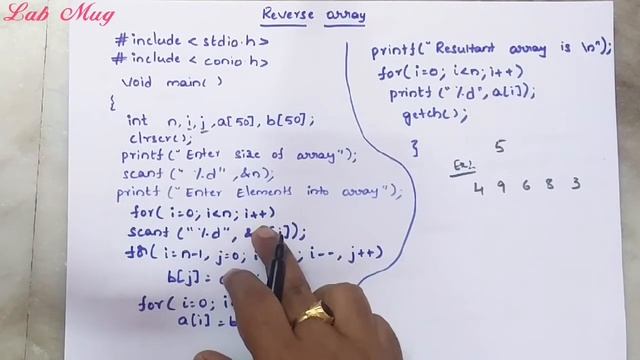 Lab Mug
Reverse array
#include <stdio.h>
#include <conio.h>
void main()
{
int n, i, j, a[50], b[50];
clrscr();
printf("Enter size of array");
scanf("%d", &n);
printf("Enter Elements into array");
for( i=0; i<n; i++)
scanf("%d",
for( i=n-1, j=0; i--, j++)
b[j] =
for( i=0;
a[i] =
printf("Resultant array is \n");
for(i=0; i<n; i++)
printf("%d", a[i]);
getch();
}
5
Ex:
4 9 6 8 3